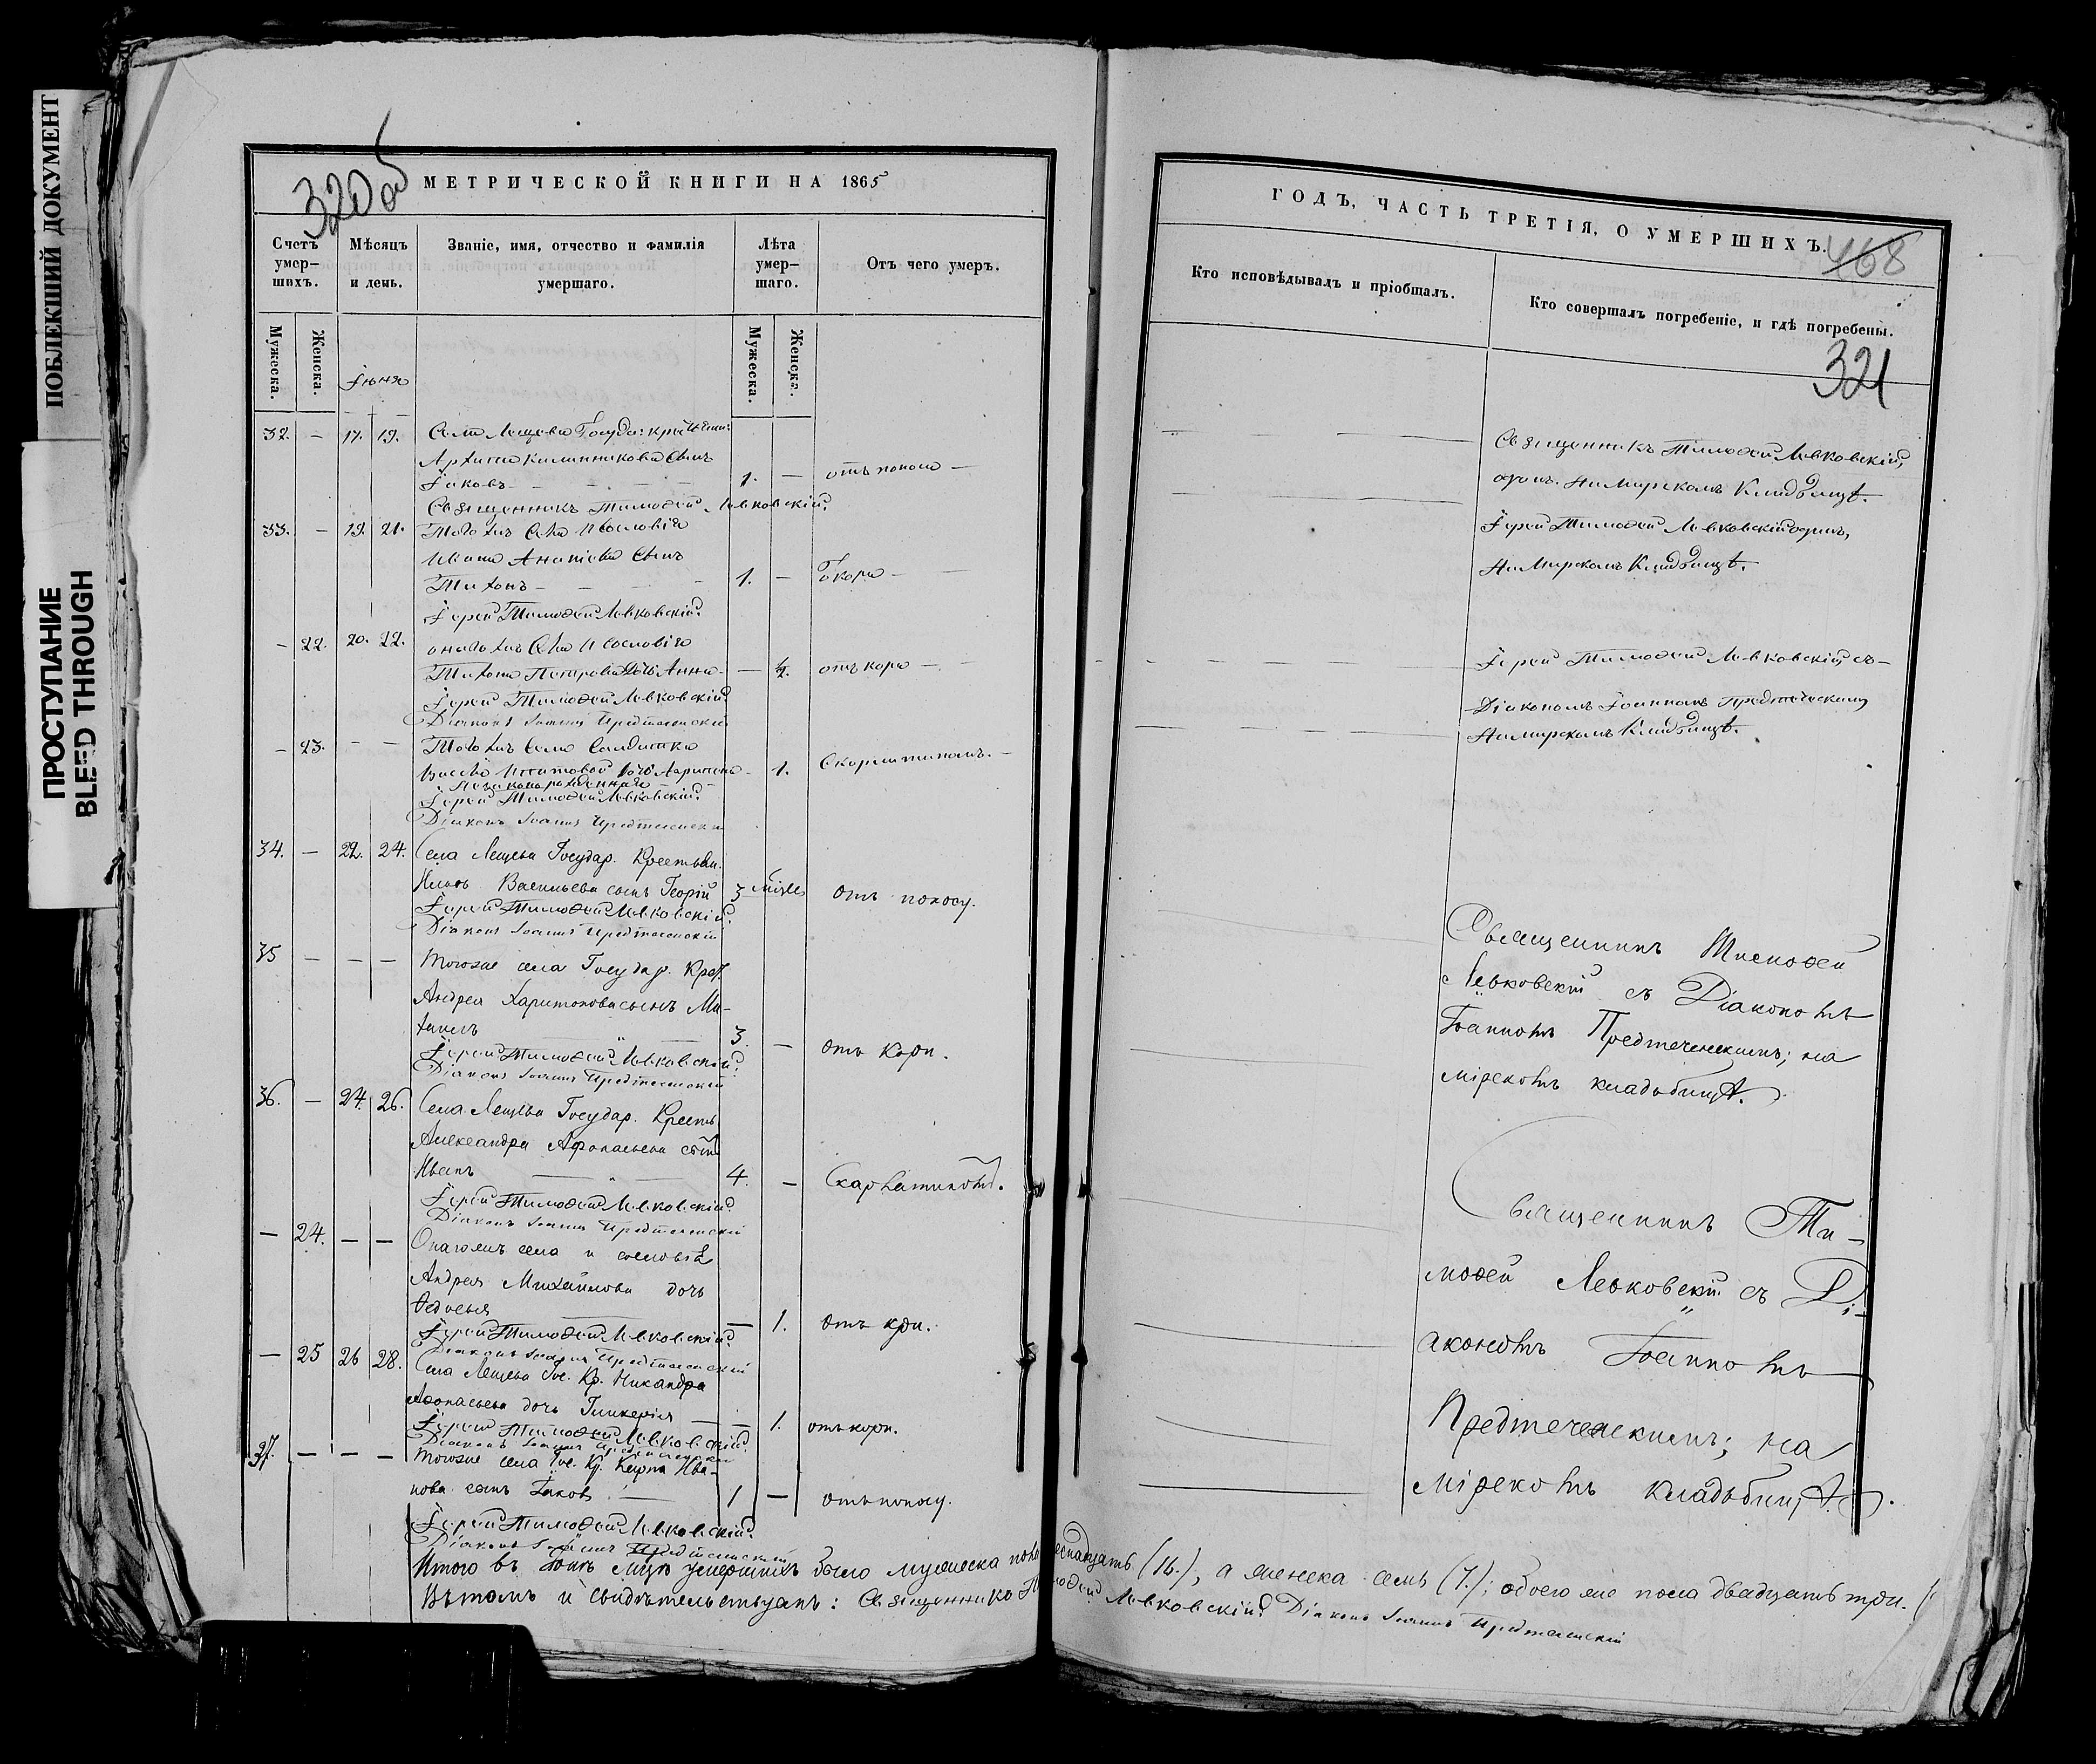 ПОБЛЕКШИЙ ДОКУМЕНТ
ПРОСТУПАНИЕ
BLED THROUGH
320 об
МЕТРИЧЕСКОЙ КНИГИ НА 1865
Счетъ умер-шихъ.
Мѣсяцъ и день.
Званіе, имя, отчество и фамилія умершаго.
Лѣта умер-шаго.
Отъ чего умеръ.
Мужеска.
Женска.
Мужеска.
Женска.
Іюня
32. — 17. 19. Села Лещева Госуда: крестьян:
Архипа Калинникова сынъ
Іаковъ 1. — отъ поноса —
Священникъ Тимоѳей Левковскій.
33. — 19. 21. Того жъ села и сословія
Ивана Ананіева сынъ
Тихонъ 1. — кори
Іерей Тимоѳей Левковскій.
— 22. 20. 22. Онаго жъ села и сословія
Тихона Петрова дочь Анна — ½. отъ кори —
Іерей Тимоѳей Левковскій
Діаконъ Іоаннъ Предтеченскій
— 23. — — Того жъ села солдатки
дочь 1. Скарлатиномъ. —
незаконорожденная
Іерей Тимоѳей Левковскій.
Діаконъ Іоаннъ Предтеченскій
34. — 22. 24. Села Лещева Государ. Крестьян.
Васильева сынъ Георгій 3 отъ поносу.
Іерей Тимоѳей Левковскій.
Діаконъ Іоаннъ Предтеченскій
35 — — — Тогоже села Государ. Крест.
Андрея Харитонова сынъ Ми-
хаилъ 3. — отъ кори.
Іерей Тимоѳей Левковскій.
Діаконъ Іоаннъ Предтеченскій
36. — 24. 26. Села Лещева Государ. Крестьь.
Александра Аѳонасьева сынъ
Иванъ 4. — Скарлатиномъ.
Іерей Тимоѳей Левковскій.
Діаконъ Іоаннъ Предтеченскій
— 24. — — Онагожъ села и сословія
Андрея Михайлова дочь
Ѳедосья — 1. отъ кри.
Іерей Тимоѳей Левковскій.
Діаконъ Іоаннъ Предтеченскій
— 25 26 28. Села Лещева Гос. Кр. Никандра
Аѳонасьева дочь Гликерія — 1. отъ кори.
Іерей Тимоѳей Левковскій.
Діаконъ Іоаннъ Предтеченскій
37. — — — Тогоже села Гос. Кр. Карпа Ива-
нова сынъ Іаковъ 1 — отъ поносу.
Іерей Тимоѳей Левковскій.
Діаконъ Іоаннъ Предтеченскій
Итого въ Іюнѣ мцѣ умершихъ было мужеска пола шеснадцать (16.), а женска семь (7.); обоего же пола двадцать три. (
Въ томъ и свидѣтельствуютъ: Священникъ Тимоѳей Левковскій Діаконъ Іоаннъ Предтеченскій
ГОДЪ, ЧАСТЬ ТРЕТІЯ, О УМЕРШИХЪ.
468
Кто исповѣдывалъ и пріобщалъ.
Кто совершалъ погребеніе, и гдѣ погребены.
321
Священникъ Тимоѳей Левковскій,
одинъ. На Мирскомъ Кладбищѣ.
Іерей Тимоѳей Левковскій одинъ,
На Мирскомъ Кладбищѣ.
Іерей Тимоѳей Левковскій съ
Діакономъ Іоанномъ Предтеченскимъ
На мирскомъ Кладбищѣ.
Священникъ Тимоѳей
Левковскій съ Діакономъ
Іоанномъ Предтеченскимъ; на
мірскомъ кладьбищѣ.
Священникъ Ти-
моѳей Левковскій съ Ді-
акономъ Іоанномъ
Предтеченскимъ; на
мірскомъ кладьбищѣ.